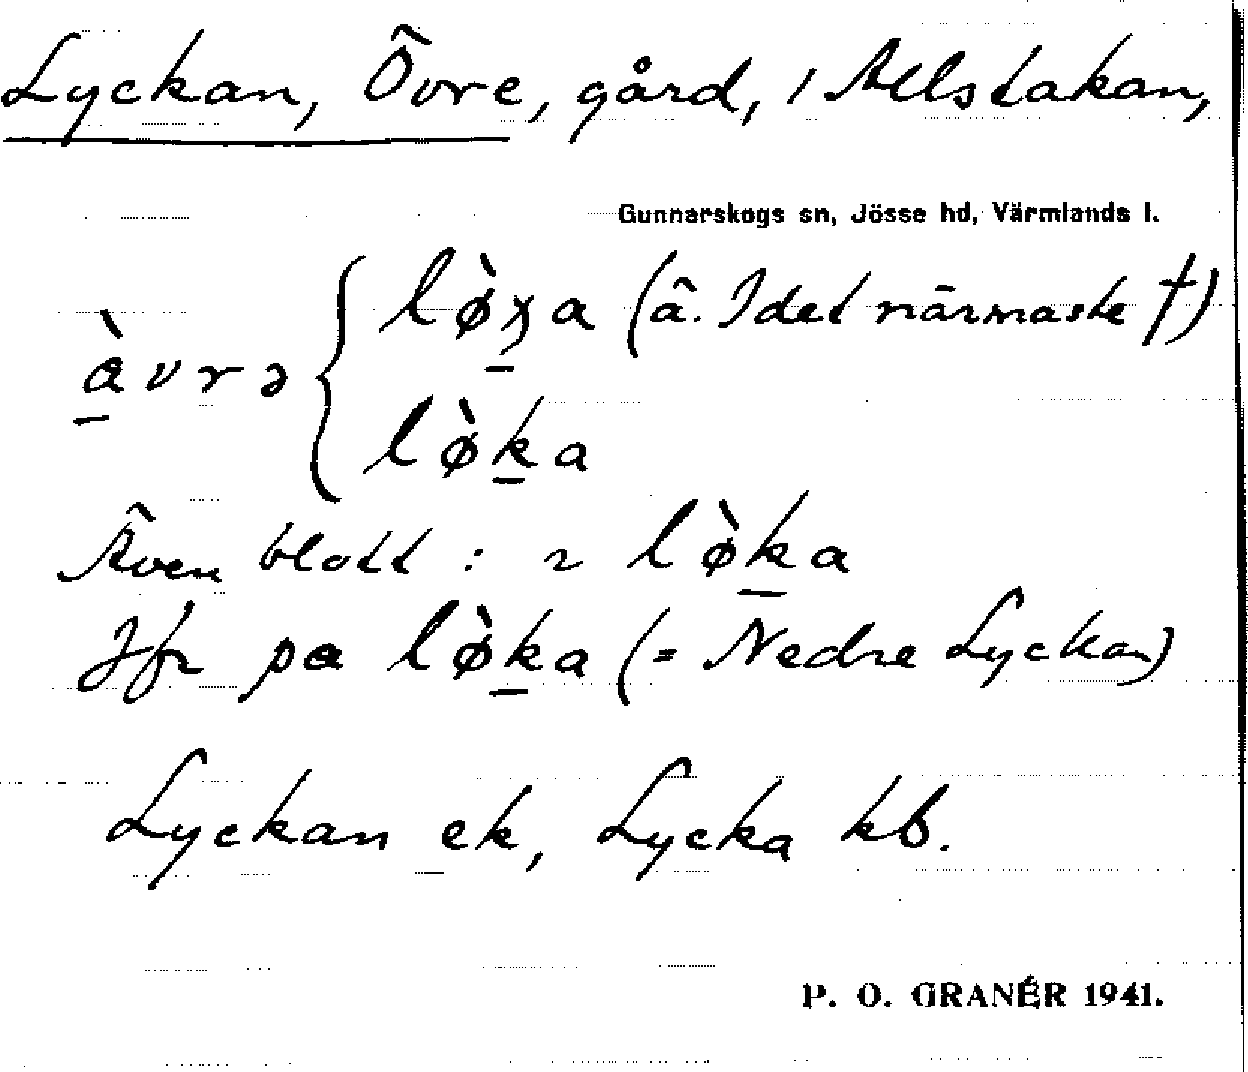 Lyckan, Övre, gård, i Allstakan,
Gunnarskogs sn, Jösse hd, Värmlands l.
àvrə { lø̀χa (ä. I det närmaste †)
lø̀ka
Även blott: 2 lø̀ka
Jfr pa lø̀ka (= Nedre Lyckan)
Lyckan ek, Lycka kb.
P. O. GRANÉR 1941.